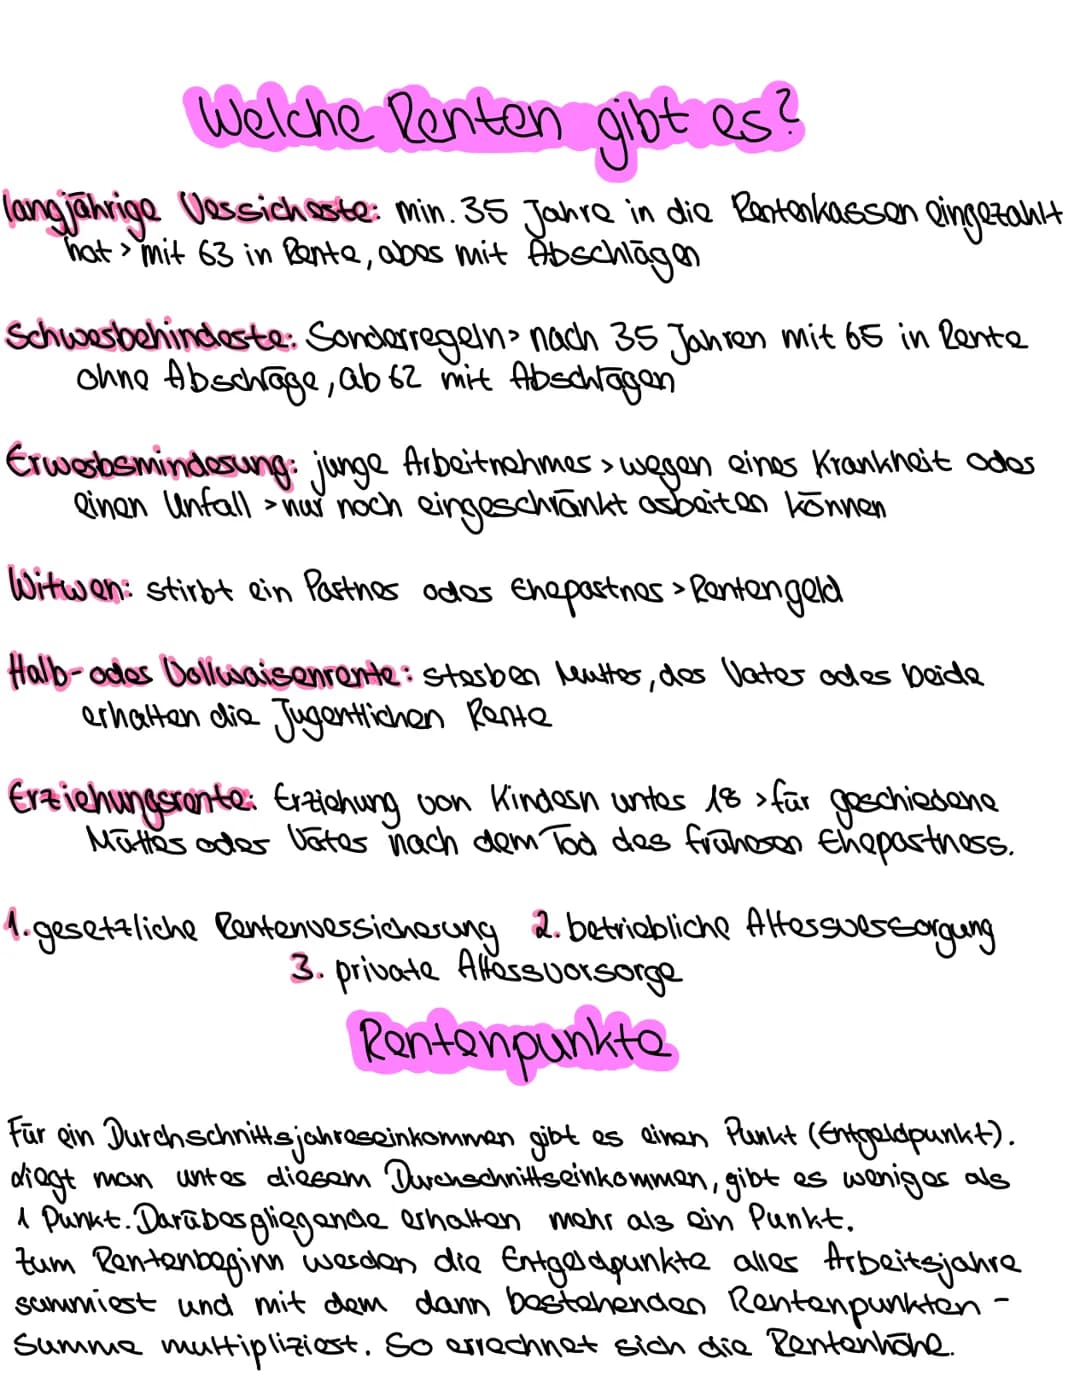 Welche Renten gibt es?
langjährige Versicherte: min. 35 Jahre in die Rentenkassen eingezahlt
hat > mit 63 in Rente, aber mit Abschlägen
Schwerbehinderte: Sonderregeln > nach 35 Jahren mit 65 in Rente
ohne Abschläge, ab 62 mit Abschlägen
Erwerbsminderung: junge Arbeitnehmer > wegen einer Krankheit oder
einen Unfall > nur noch eingeschränkt arbeiten können
Witwen: stirbt ein Partner oder Ehepartner > Rentengeld
Halb- oder Vollwaisenrente: sterben Mutter, der Vater oder beide
erhalten die Jugentlichen Rente
Erziehungsrente: Erziehung von Kindern unter 18 > für geschiedene
Mütter oder Väter nach dem Tod des früheren Ehepartners.
1. gesetzliche Rentenversicherung 2. betriebliche Altersversorgung
3. private Altersvorsorge
Rentenpunkte
Für ein Durchschnittsjahreseinkommen gibt es einen Punkt (Entgeldpunkt).
liegt man unter diesem Durchschnittseinkommen, gibt es weniger als
1 Punkt. Darüberglliegende erhalten mehr als ein Punkt.
Zum Rentenbeginn werden die Entgeldpunkte aller Arbeitsjahre
summiert und mit dem dann bestehenden Rentenpunkten-
Summe multipliziert. So errechnet sich die Rentenhöhe.